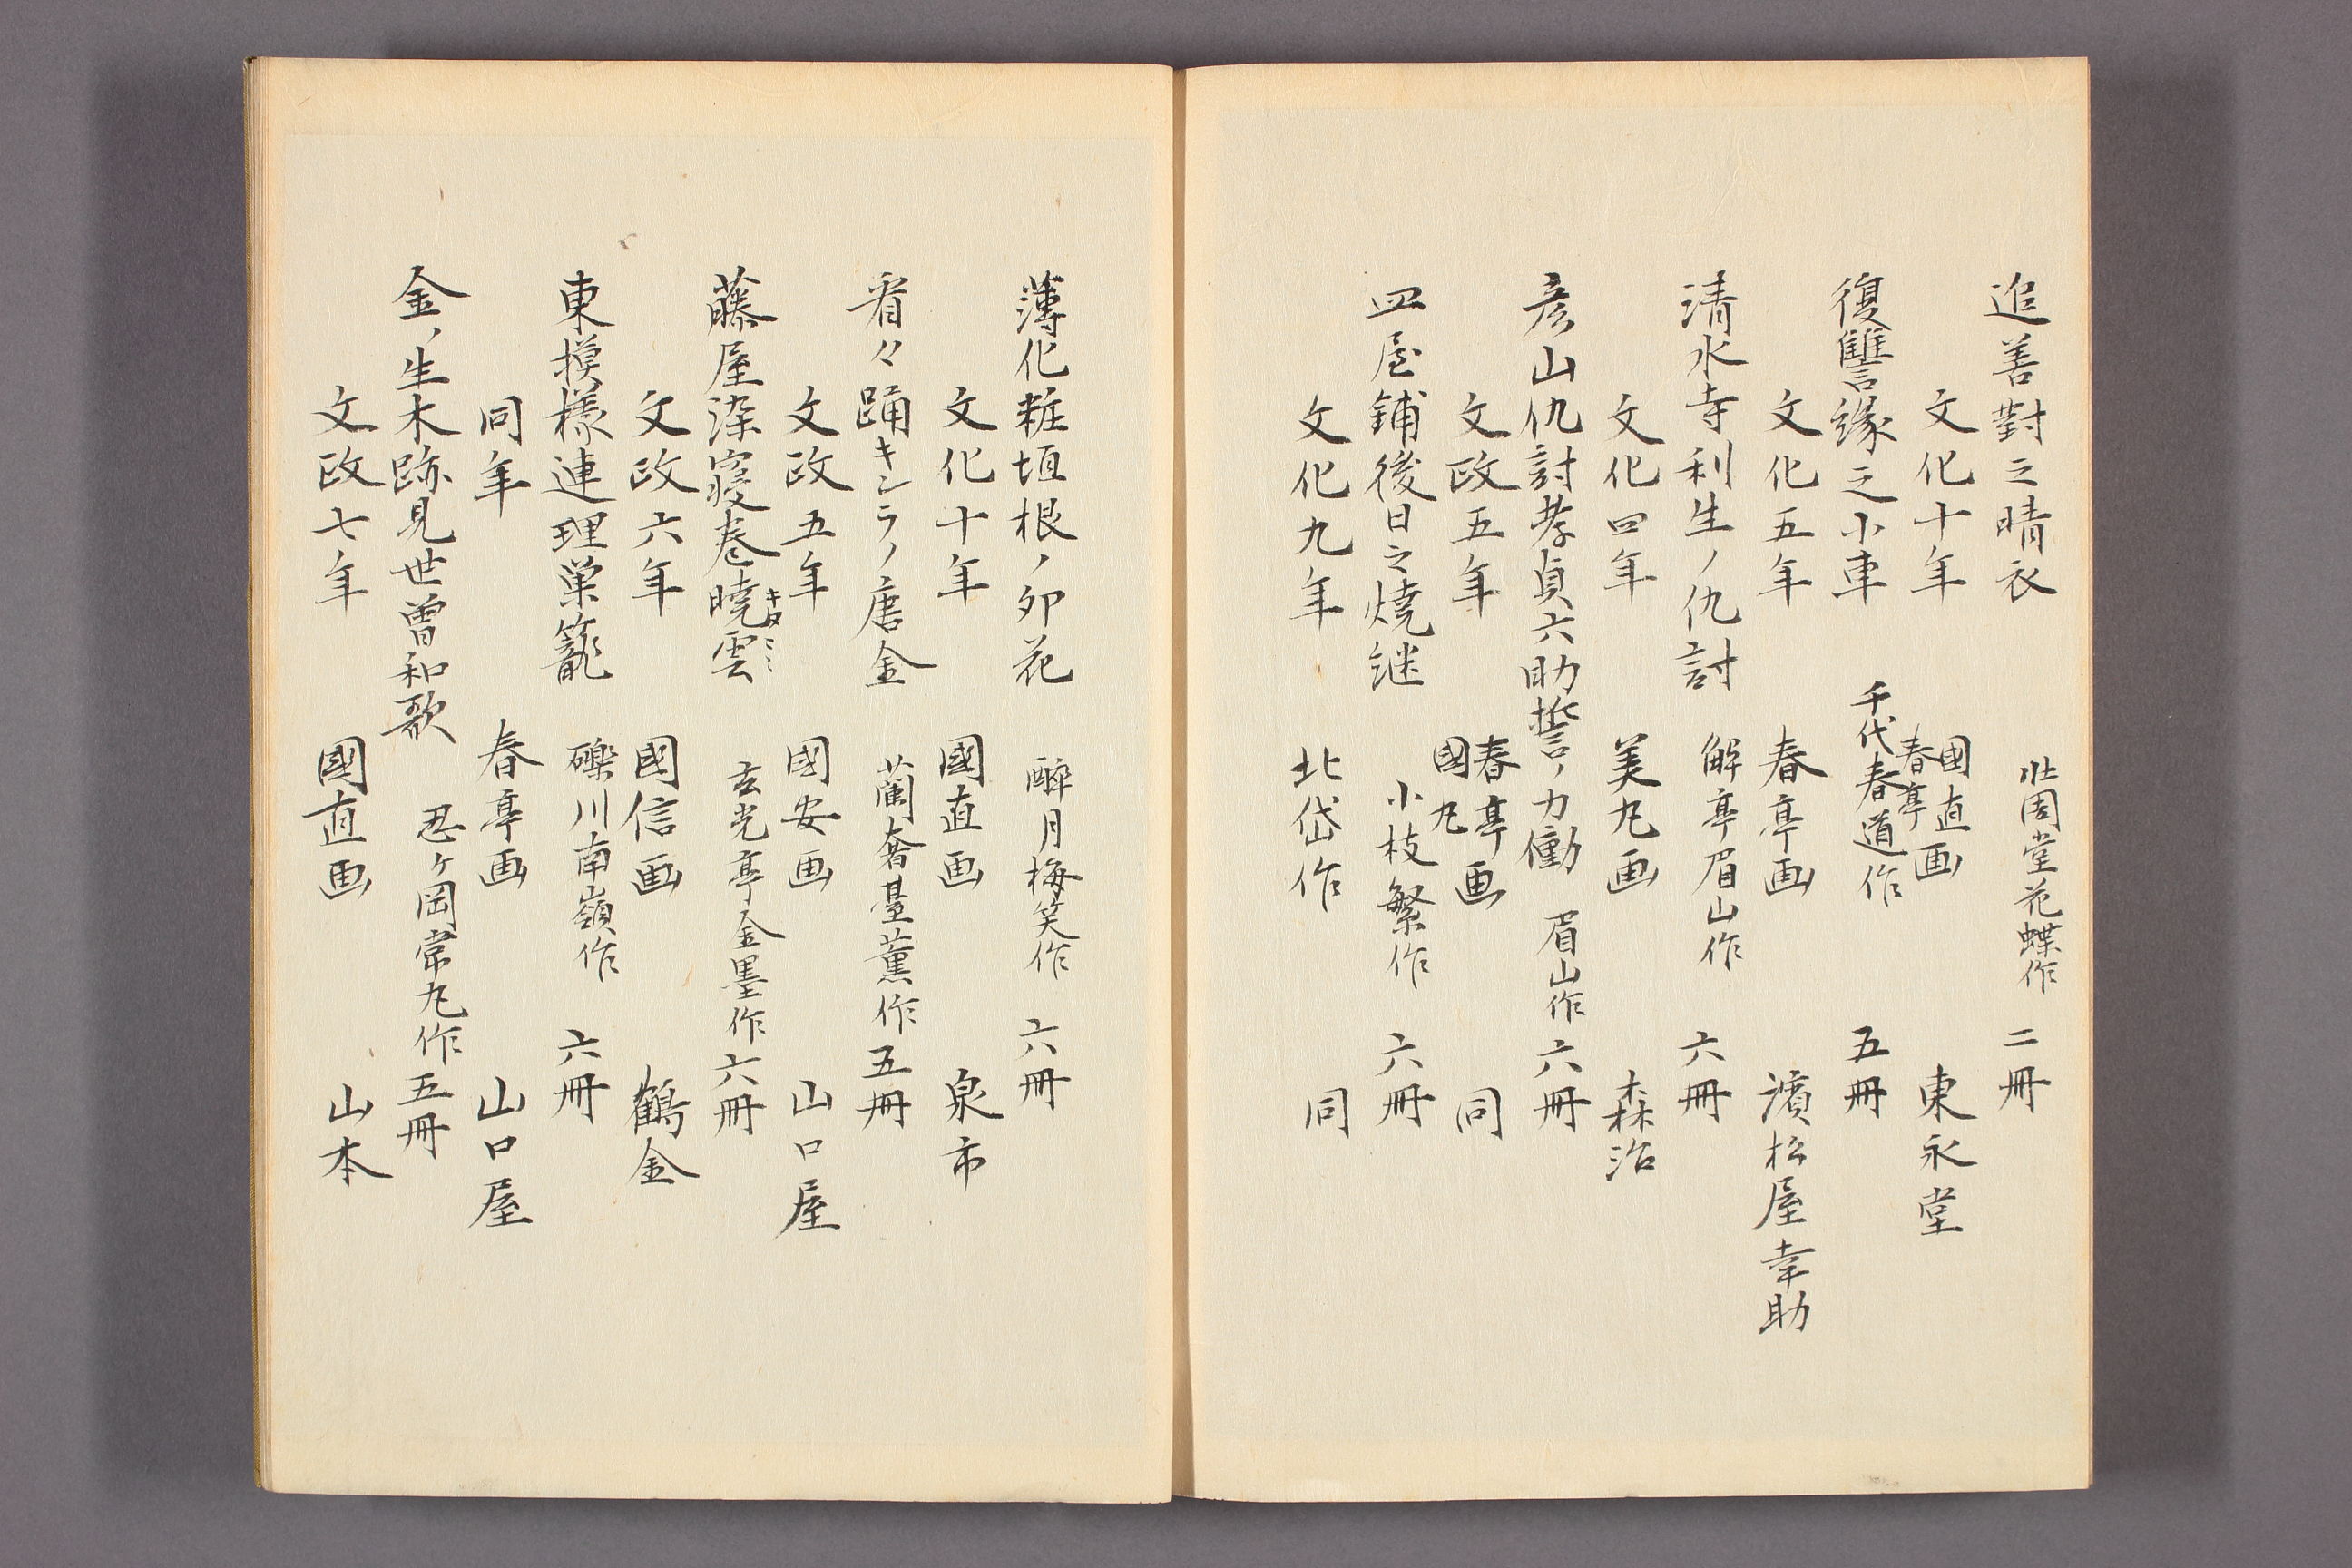 追善對之晴衣 壯周堂花蝶作 二冊
文化十年 國直 春亭画 東永堂
復讐縁之小車 千代春道作 五冊
文化五年 春亭画 濱松屋幸助
清水寺利生ノ仇討 解亭眉山作 六冊
文化四年 美丸画 森治
彦山仇討孝貞六助誓ノ力働 眉山作 六冊
文政五年 春亭 國丸画 同
皿屋鋪後日之焼継 小枝繁作 六冊
文化九年 北岱作 同
薄化粧垣根ノ卯花 醉月梅笑作 六冊
文化十年 國直画 泉市
看々踊キンラノ唐金 蘭奢臺薫作 五冊
文政五年 國安画 山口屋
藤屋染寝巻暁雲 玄光亭金墨作 六冊
文政六年 國信画 鶴金
東摸様連理巣篭 礫川南嶺作 六冊
同年 春亭画 山口屋
金ノ生木跡見世曽和歌 忍ヶ岡常丸作 五冊
文政七年 國直画 山本